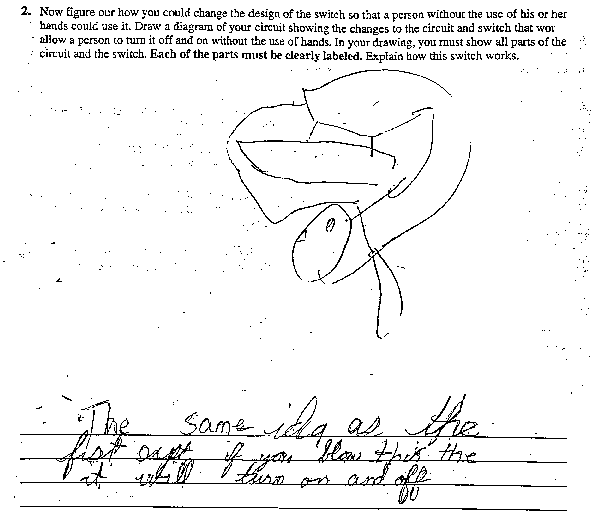 2. Now figure our how you could change the design of the switch so that a person without the use of his or her
hands could use it. Draw a diagram of your circuit showing the changes to the circuit and switch that wou
allow a person to turn it off and on without the use of hands. In your drawing, you must show all parts of the
circuit and the switch. Each of the parts must be clearly labeled. Explain how this switch works.
The same idea as the
fist if you blow this the
it will turn on and off